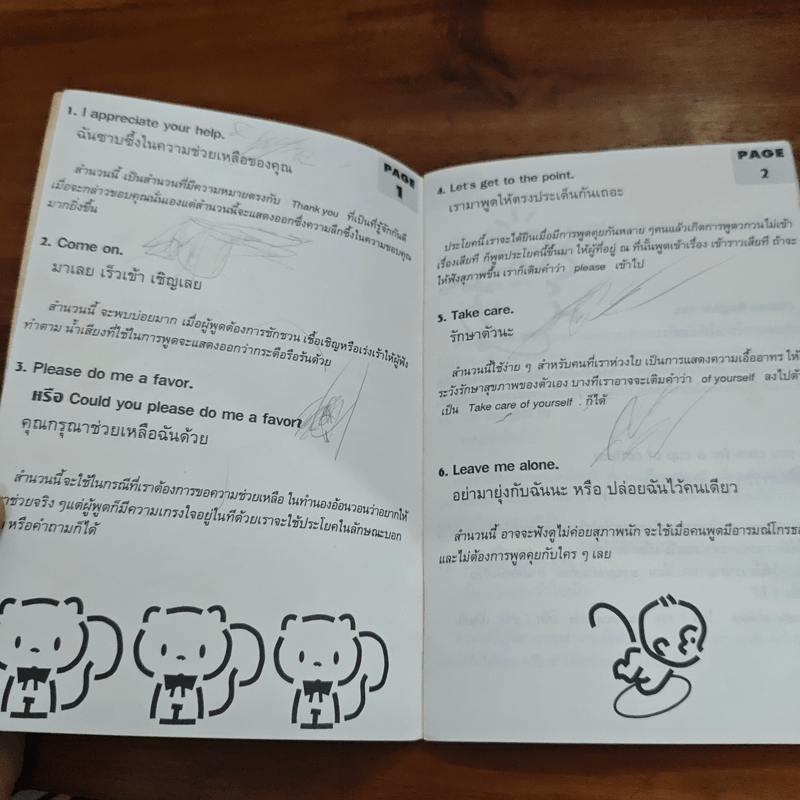 1. I appreciate your help.
ฉันซาบซึ้งในความช่วยเหลือของคุณ
PAGE
1
สำนวนนี้ เป็นสำนวนที่มีความหมายตรงกับ Thank you ที่เป็นที่รู้จักกันดี
เมื่อจะกล่าวขอบคุณนั่นเองแต่สำนวนนี้จะแสดงออกซึ่งความลึกซึ้งในความขอบคุณ
มากยิ่งขึ้น
2. Come on.
มาเลย เร็วเข้า เชิญเลย
สำนวนนี้ จะพบบ่อยมาก เมื่อผู้พูดต้องการชักชวน เชื้อเชิญหรือเร่งเร้าให้ผู้ฟัง
ทำตาม น้ำเสียงที่ใช้ในการพูดจะแสดงออกว่ากระตือรือร้นด้วย
3. Please do me a favor.
หรือ Could you please do me a favor
คุณกรุณาช่วยเหลือฉันด้วย
สำนวนนี้จะใช้ในกรณีที่เราต้องการขอความช่วยเหลือ ในทำนองอ้อนวอนว่าอยากให้
ช่วยจริง ๆแต่ผู้พูดก็มีความเกรงใจอยู่ในทีด้วยเราจะใช้ประโยคในลักษณะบอก
หรือคำถามก็ได้
PAGE
2
4. Let's get to the point.
เรามาพูดให้ตรงประเด็นกันเถอะ
ประโยคนี้ เราจะได้ยินเมื่อมีการพูดคุยกันหลาย ๆคนแล้วเกิดการพูดวกวนไม่เข้า
เรื่องเสียที ก็พูดประโยคนี้ขึ้นมา ให้ผู้ที่อยู่ ณ ที่นั้นพูดเข้าเรื่อง เข้าราวเสียที ถ้าจะ
ให้ฟังสุภาพขึ้น เราก็เติมคำว่า please เข้าไป
5. Take care.
รักษาตัวนะ
สำนวนนี้ใช้ง่าย ๆ สำหรับคนที่เราห่วงใย เป็นการแสดงความเอื้ออาทร ให้
ระวังรักษาสุขภาพของตัวเอง บางทีเราอาจจะเติมคำว่า of yourself ลงไปด้
เป็น Take care of yourself . ก็ได้
6. Leave me alone.
อย่ามายุ่งกับฉันนะ หรือ ปล่อยฉันไว้คนเดียว
สำนวนนี้ อาจจะฟังดูไม่ค่อยสุภาพนัก จะใช้เมื่อคนพูดมีอารมณ์โกรธ
และไม่ต้องการพูดคุยกับใคร ๆ เลย